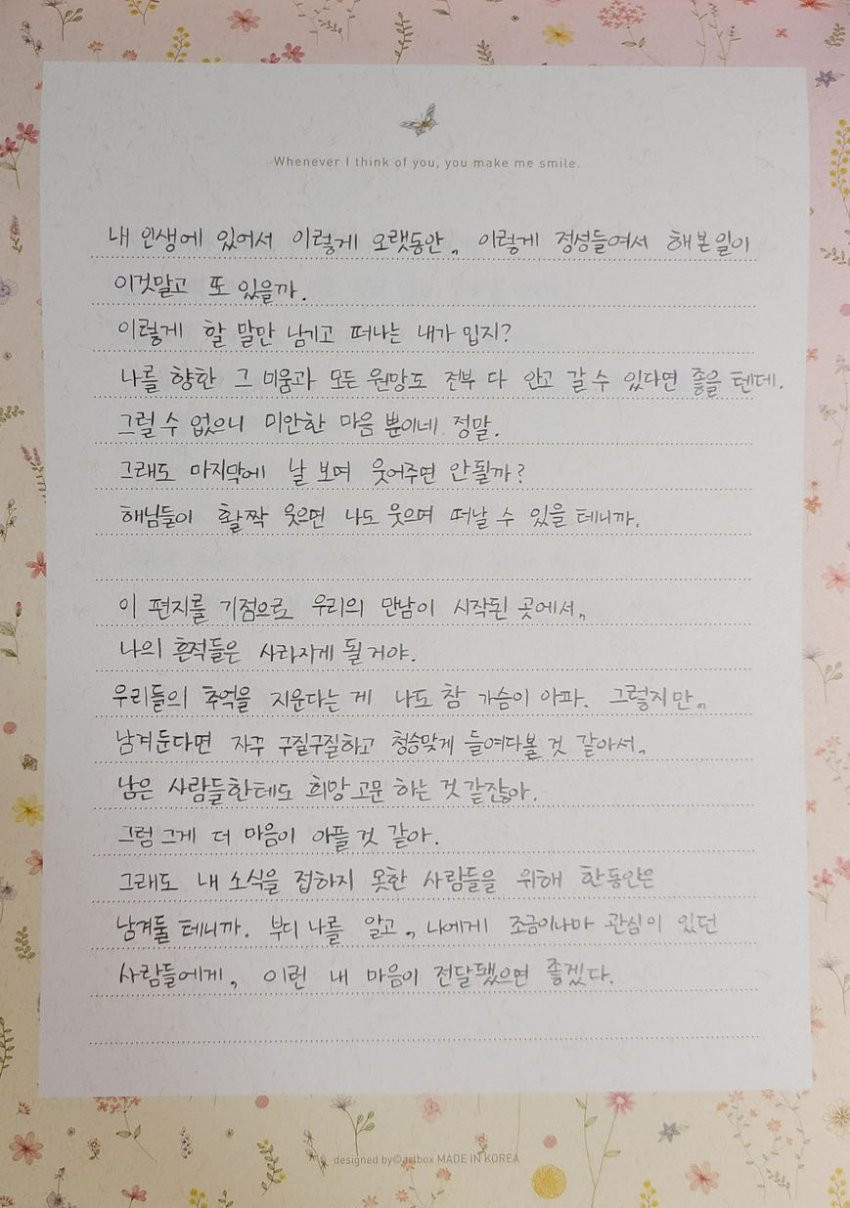 Whenever I think of you, you make me smile.
내 인생에 있어서 이렇게 오랫동안, 이렇게 정성들여서 해본일이
이것말고 또 있을까.
이렇게 할 말만 남기고 떠나는 내가 밉지?
나를 향한 그 미움과 모든 원망도 전부 다 안고 갈 수 있다면 좋을 텐데.
그럴 수 없으니 미안한 마음 뿐이네. 정말.
그래도 마지막에 날 보며 웃어주면 안될까?
해님들이 활짝 웃으면 나도 웃으며 떠날 수 있을 테니까.
이 편지를 기점으로 우리의 만남이 시작된 곳에서,
나의 흔적들은 사라지게 될거야.
우리들의 추억을 지운다는 게 나도 참 가슴이 아파. 그렇지만,
남겨둔다면 자꾸 구질구질하고 청승맞게 들여다볼 것 같아서,
남은 사람들한테도 희망고문 하는 것 같잖아.
그럼 그게 더 마음이 아플 것 같아.
그래도 내 소식을 접하지 못한 사람들을 위해 한동안은
남겨둘 테니까. 부디 나를 알고, 나에게 조금이나마 관심이 있던
사람들에게, 이런 내 마음이 전달됐으면 좋겠다.
designed by©artbox MADE IN KOREA